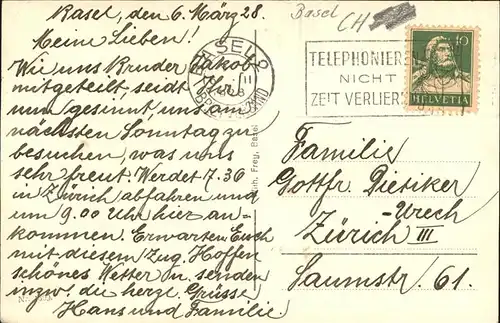 Basel, den 6. März 28.
Meine Lieben!
Wie uns Bruder Jakob
mitgeteilt, seidt Ihr
nun gesinnt uns am
nächsten Sonntag zu
besuchen, was uns
sehr freut. Werdet 7.36
in Zürich abfahren und
um 9.00 Uhr hier an-
kommen. Erwarten Euch
mit diesem Zug. Hoffen
schönes Wetter u. senden
inzw. die herzl. Grüsse
Hans und Familie
Basel
CH
BASEL 2
TELEPHONIER
NICHT
ZEIT VERLIER
10
HELVETIA
Frey, Basel
Familie
Gottfr. Dietiker
-Urech
Zürich III
Saumstr. 61.